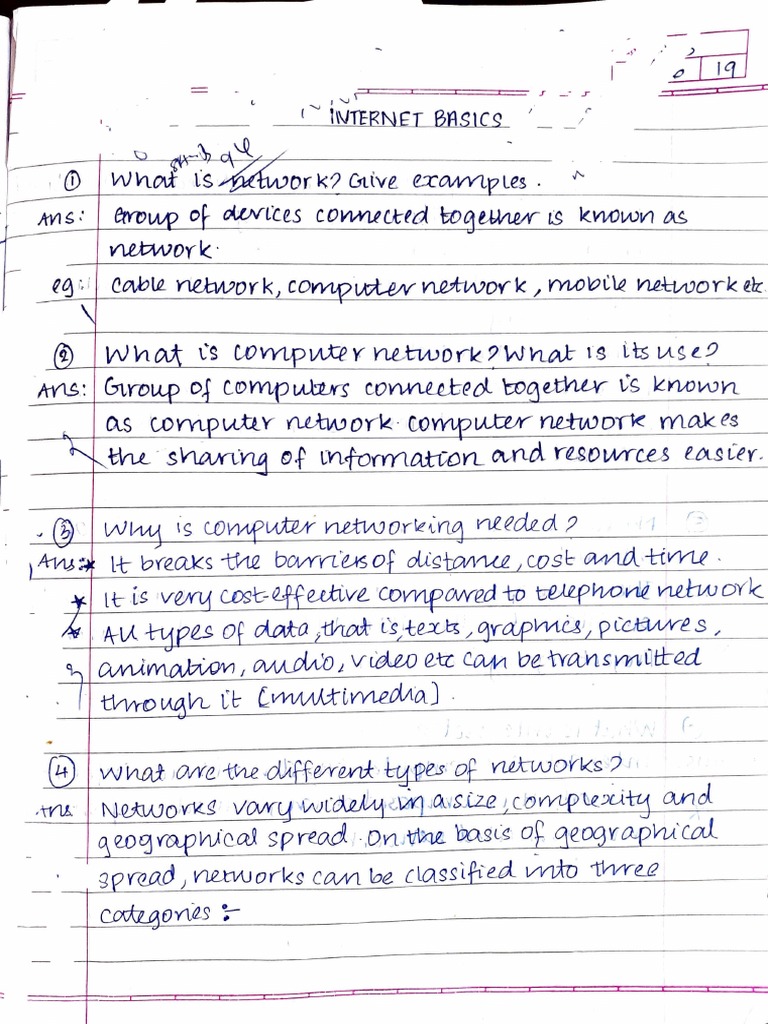 19
INTERNET BASICS
① What is network? Give examples.
Ans: Group of devices connected together is known as
network.
eg: cable network, computer network, mobile network etc
② What is computer network? What is its use?
Ans: Group of computers connected together is known
as computer network. computer network makes
the sharing of information and resources easier.
③ Why is computer networking needed?
Ans: * It breaks the barriers of distance, cost and time.
* It is very cost-effective compared to telephone network
* All types of data, that is, texts, graphics, pictures,
animation, audio, video etc can be transmitted
through it [multimedia].
④ What are the different types of networks?
Ans Networks vary widely in a size, complexity and
geographical spread. On the basis of geographical
spread, networks can be classified into three
categories :-